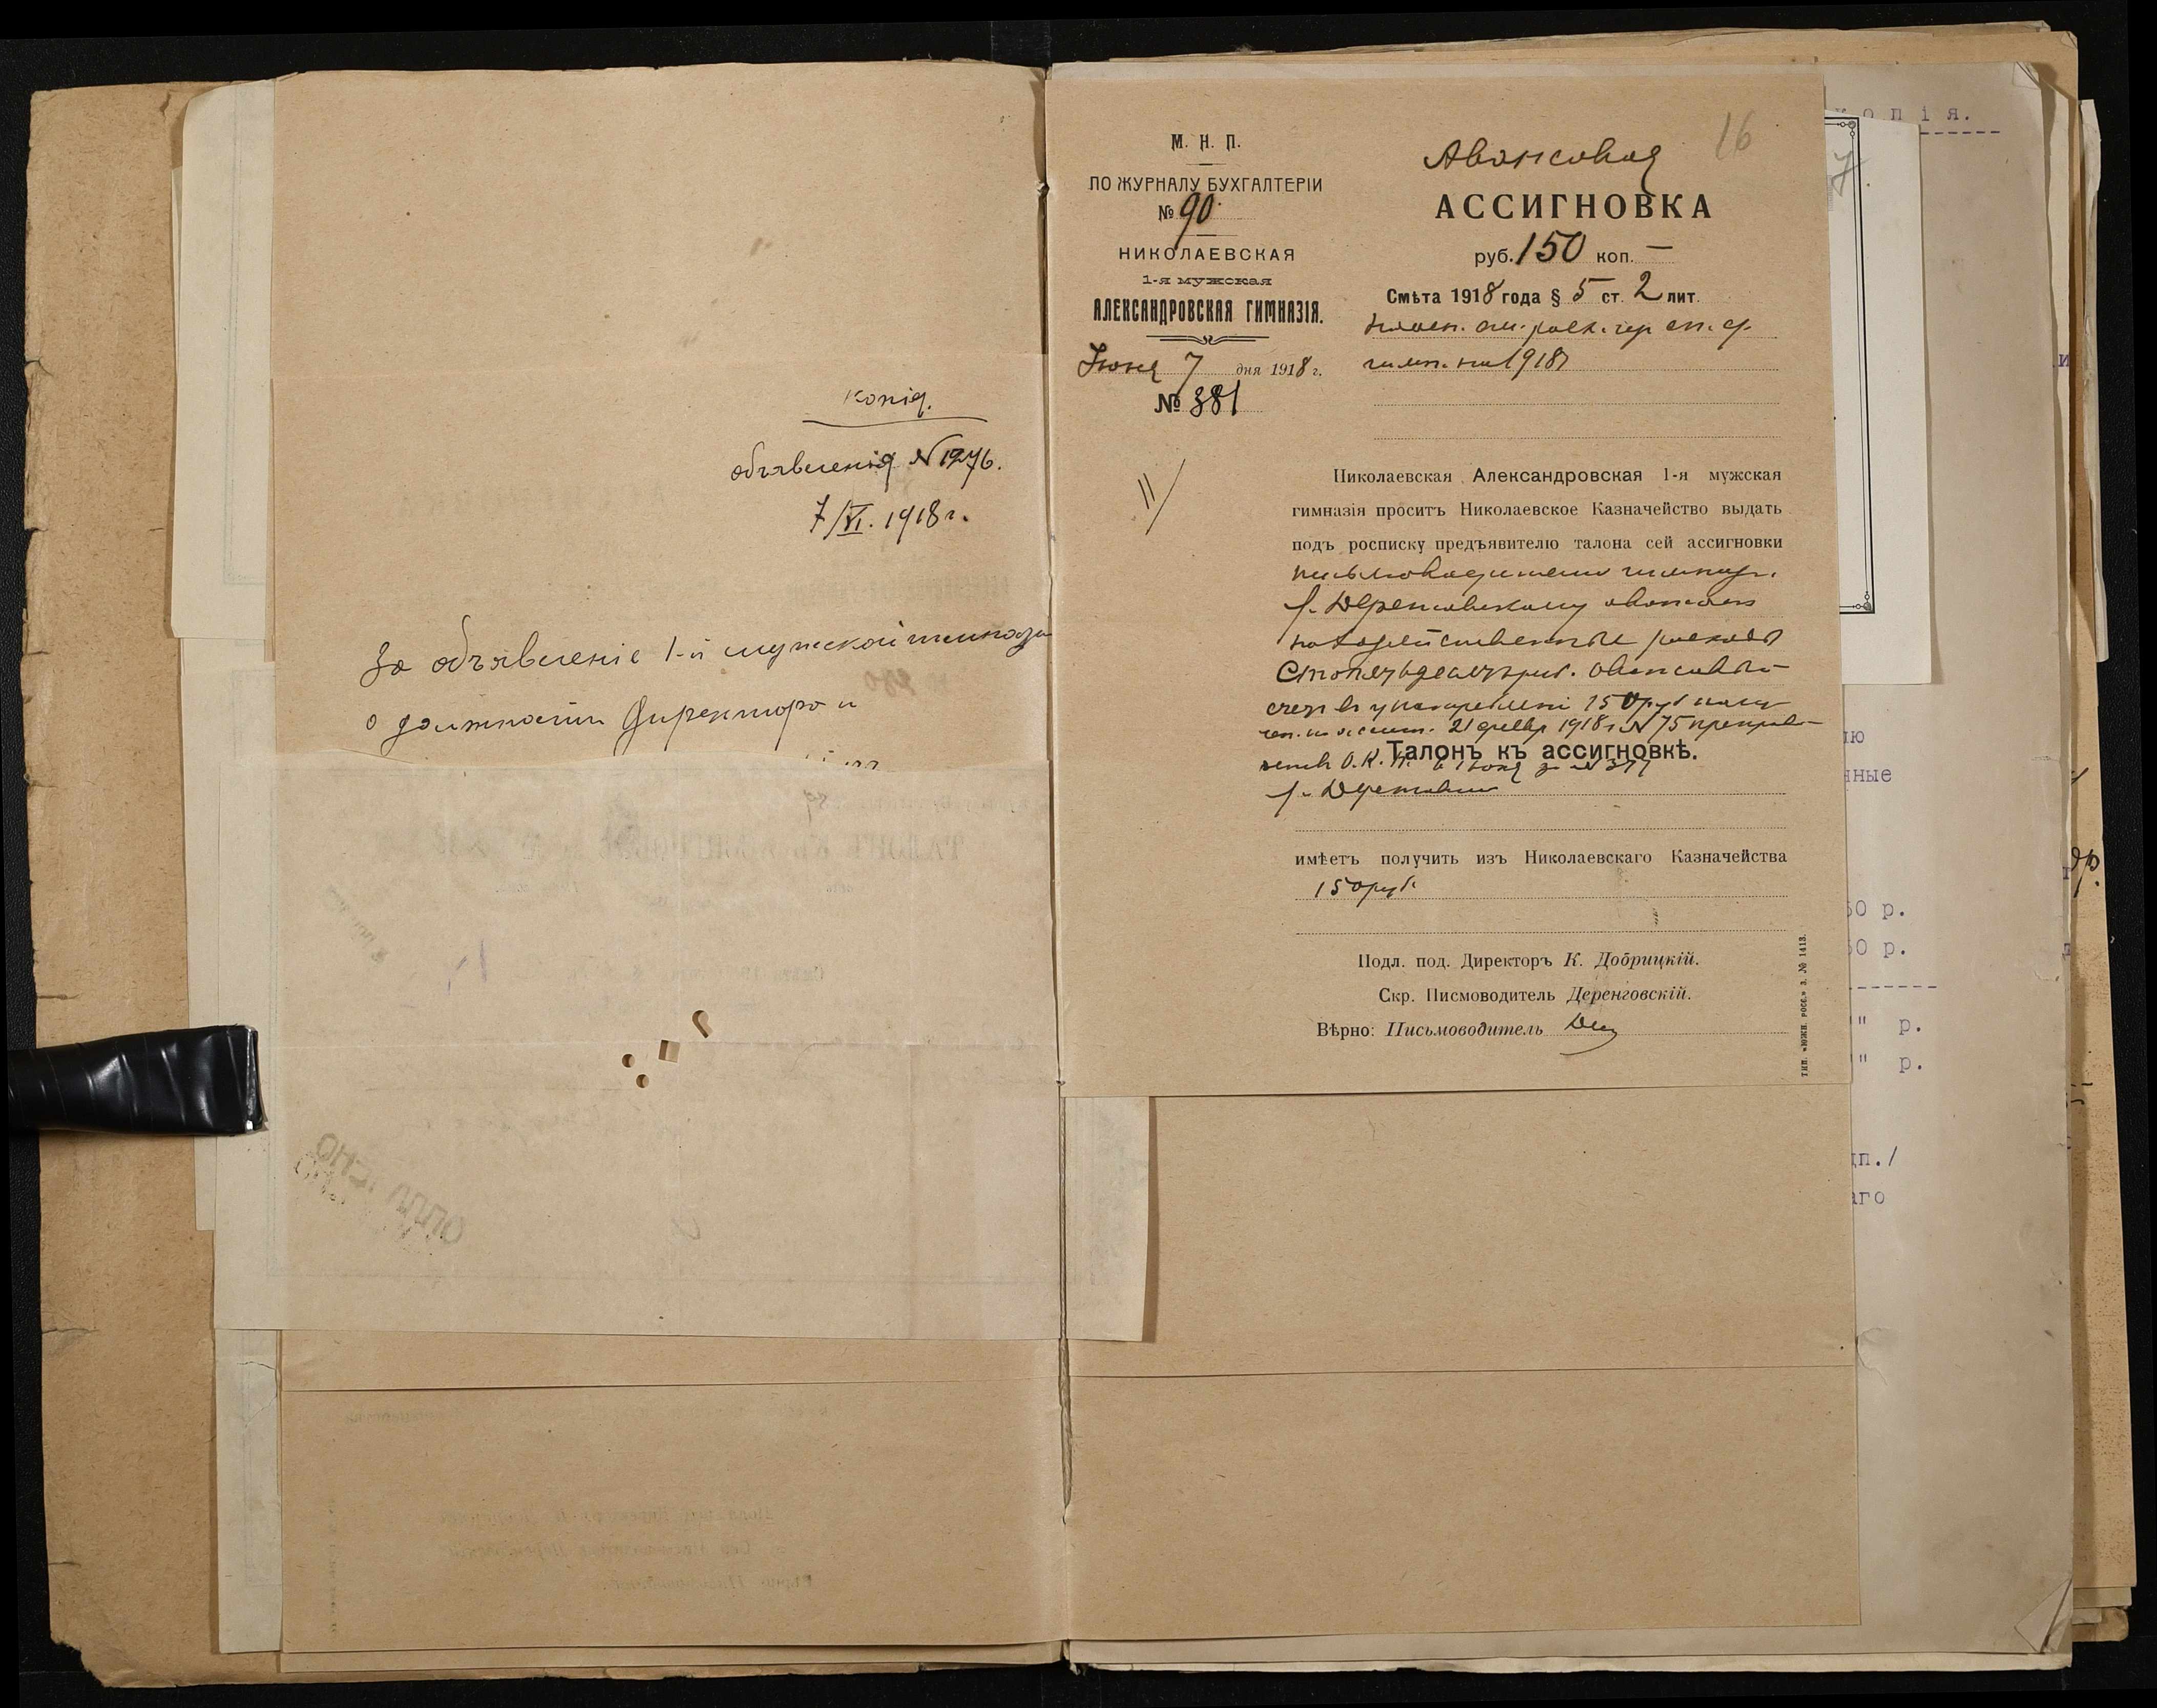 копія.
объявленія N 1276.
7/VI. 1918 г.
За объявленіе 1-й мужской гимназіи
о должности Директора и
М. Н. П.
ПО ЖУРНАЛУ БУХГАЛТЕРІИ
№ 90
НИКОЛАЕВСКАЯ
1-я мужская
АЛЕКСАНДРОВСКАЯ ГИМНАЗІЯ.
Іюня 7 дня 1918 г.
№ 381
16
Авансовая
АССИГНОВКА
руб. 150 коп. —
Смѣта 1918 года § 5 ст. 2 лит.
гимн. на 1918 г
Николаевская Александровская 1-я мужская
гимназія проситъ Николаевское Казначейство выдать
подъ росписку предъявителю талона сей ассигновки
письмоводителю гимназ.
г. Деренговскому авансом
на хозяйственные расходы
Стопятьдесятъ руб. Авансовый
счетъ в употребленіи 150 руб
21 февр 1918 г. N 75 препров-
О. К. П. 6 Іюня за N 377
Талонъ къ ассигновкѣ.
г. Деренговскій
имѣетъ получить изъ Николаевскаго Казначейства
150 руб.
Подл. под. Директоръ К. Добрицкій.
Скр. Писмоводитель Деренговскій.
Вѣрно: Письмоводитель
ТИП. «ЮЖН. РОСС.» З. № 1413.
о п і я.
7.
ю
нные
50 р.
50 р.
" р.
" р.
дп./
аго